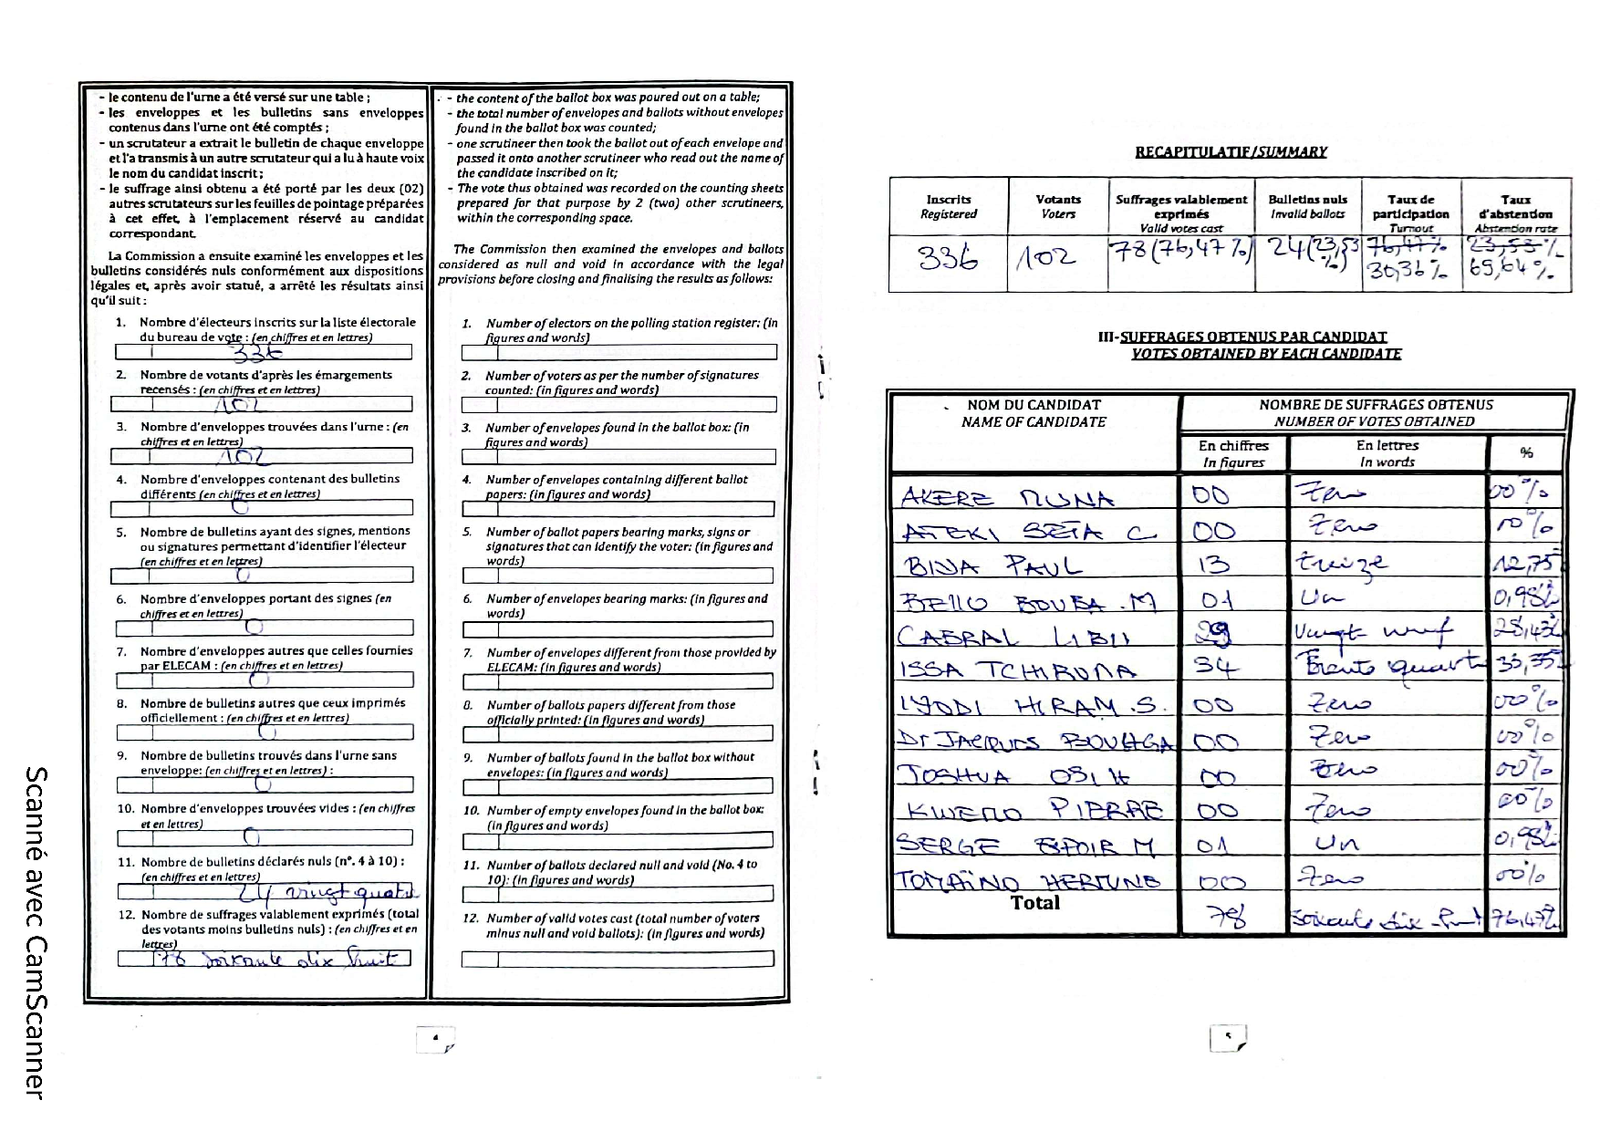 - le contenu de l'urne a été versé sur une table ;
- les enveloppes et les bulletins sans enveloppes
contenus dans l'urne ont été comptés ;
- un scrutateur a extrait le bulletin de chaque enveloppe
et l'a transmis à un autre scrutateur qui a lu à haute voix
le nom du candidat inscrit ;
- le suffrage ainsi obtenu a été porté par les deux (02)
autres scrutateurs sur les feuilles de pointage préparées
à cet effet, à l'emplacement réservé au candidat
correspondant.
La Commission a ensuite examiné les enveloppes et les
bulletins considérés nuls conformément aux dispositions
légales et, après avoir statué, a arrêté les résultats ainsi
qu'il suit :
1. Nombre d'électeurs inscrits sur la liste électorale
du bureau de vote : (en chiffres et en lettres)
336
2. Nombre de votants d'après les émargements
recensés : (en chiffres et en lettres)
102
3. Nombre d'enveloppes trouvées dans l'urne : (en
chiffres et en lettres)
102
4. Nombre d'enveloppes contenant des bulletins
différents (en chiffres et en lettres)
0
5. Nombre de bulletins ayant des signes, mentions
ou signatures permettant d'identifier l'électeur
(en chiffres et en lettres)
0
6. Nombre d'enveloppes portant des signes (en
chiffres et en lettres)
0
7. Nombre d'enveloppes autres que celles fournies
par ELECAM : (en chiffres et en lettres)
0
8. Nombre de bulletins autres que ceux imprimés
officiellement : (en chiffres et en lettres)
0
9. Nombre de bulletins trouvés dans l'urne sans
enveloppe: (en chiffres et en lettres) :
0
10. Nombre d'enveloppes trouvées vides : (en chiffres
et en lettres)
0
11. Nombre de bulletins déclarés nuls (n°. 4 à 10) :
(en chiffres et en lettres)
24 vingt quatre
12. Nombre de suffrages valablement exprimés (total
des votants moins bulletins nuls) : (en chiffres et en
lettres)
78 soixante dix huit
- the content of the ballot box was poured out on a table;
- the total number of envelopes and ballots without envelopes
found in the ballot box was counted;
- one scrutineer then took the ballot out of each envelope and
passed it onto another scrutineer who read out the name of
the candidate inscribed on it;
- The vote thus obtained was recorded on the counting sheets
prepared for that purpose by 2 (two) other scrutineers,
within the corresponding space.
The Commission then examined the envelopes and ballots
considered as null and void in accordance with the legal
provisions before closing and finalising the results as follows:
1. Number of electors on the polling station register: (in
figures and words)
2. Number of voters as per the number of signatures
counted: (in figures and words)
3. Number of envelopes found in the ballot box: (in
figures and words)
4. Number of envelopes containing different ballot
papers: (in figures and words)
5. Number of ballot papers bearing marks, signs or
signatures that can identify the voter: (in figures and
words)
6. Number of envelopes bearing marks: (in figures and
words)
7. Number of envelopes different from those provided by
ELECAM: (in figures and words)
8. Number of ballots papers different from those
officially printed: (in figures and words)
9. Number of ballots found in the ballot box without
envelopes: (in figures and words)
10. Number of empty envelopes found in the ballot box:
(in figures and words)
11. Number of ballots declared null and void (No. 4 to
10): (in figures and words)
12. Number of valid votes cast (total number of voters
minus null and void ballots): (in figures and words)
4
RECAPITULATIF/SUMMARY
Inscrits Votants Suffrages valablement exprimés Bulletins nuls Taux de participation Taux d'abstention
Registered Voters Valid votes cast Invalid ballots Turnout Abstention rate
336 102 78 (76,47 %) 24 (23,53 %) 76,47% 23,53%
30,36% 69,64%
III-SUFFRAGES OBTENUS PAR CANDIDAT
VOTES OBTAINED BY EACH CANDIDATE
NOM DU CANDIDAT NOMBRE DE SUFFRAGES OBTENUS
NAME OF CANDIDATE NUMBER OF VOTES OBTAINED
En chiffres En lettres %
In figures In words
AKERE MUNA 00 Zero 00%
ATEKI SETA C 00 Zero 00%
BIYA PAUL 13 treize 12,75
BELLO BOUBA .M 01 Un 0,98%
CABRAL LIBII 29 Vingt neuf 28,43%
ISSA TCHIROMA 34 Trente quatre 33,33%
LYODI HIRAM .S. 00 Zero 00%
Dr JACQUES BOUHGA 00 Zero 00%
JOSHUA OSIH 00 Zero 00%
KWEMO PIERRE 00 Zero 00%
SERGE ESPOIR M 01 Un 0,98%
TOMAÏNO HERTUNB 00 Zero 00%
Total 78 Soixante dix-huit 76,47%
5
Scanné avec CamScanner